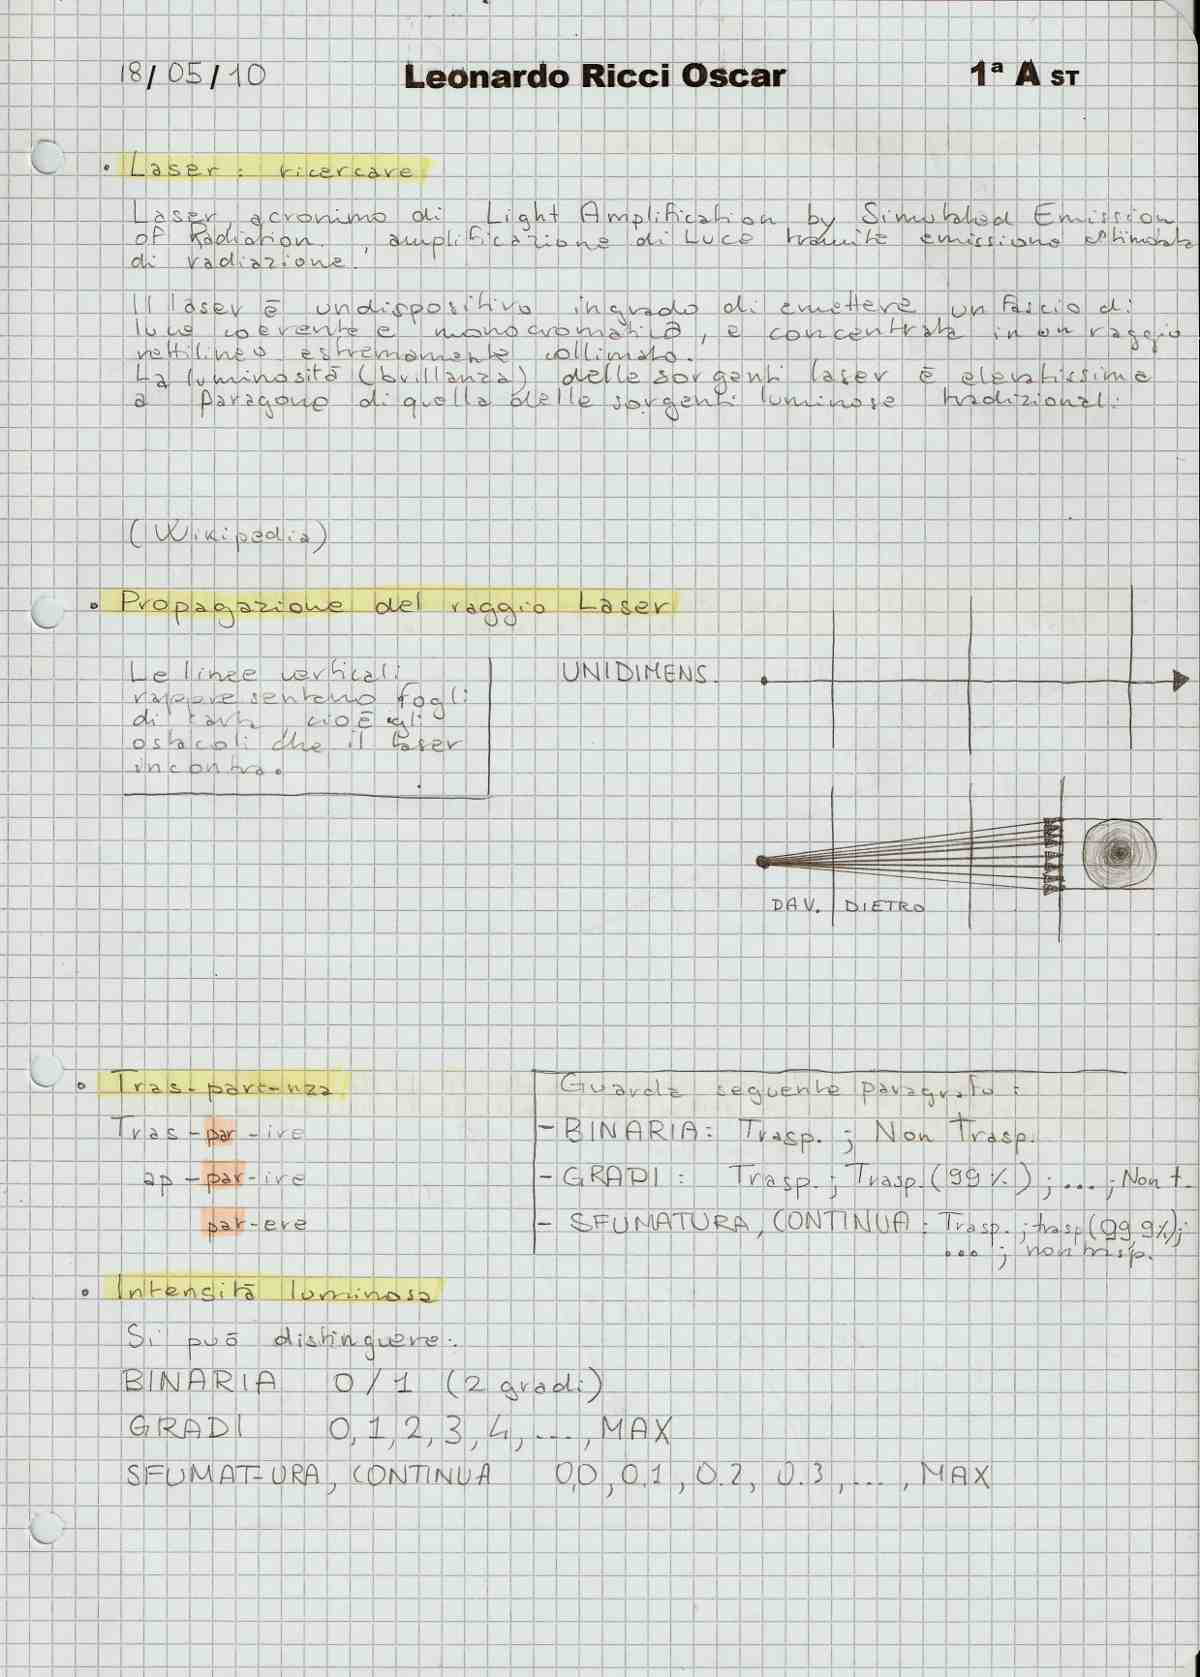 18/05/10 Leonardo Ricci Oscar 1ª A ST
• Laser: ricercare
Laser, acronimo di Light Amplification by Simulated Emission
of Radiation, amplificazione di Luce tramite emissione stimolata
di radiazione.
Il laser è un dispositivo in grado di emettere un fascio di
luce coerente e monocromatica, e concentrata in un raggio
rettilineo estremamente collimato.
La luminosità (brillanza) delle sorgenti laser è elevatissima
a paragone di quella delle sorgenti luminose tradizionali.
(Wikipedia)
• Propagazione del raggio Laser
Le linee verticali
rappresentano fogli
di carta cioè gli
ostacoli che il laser
incontra.
UNIDIMENS.
DAV. DIETRO
• Tras-pare-nza
Tras-par-ire
ap-par-ire
par-ere
Guarda seguente paragrafo:
- BINARIA: Trasp.; Non Trasp.
- GRADI: Trasp.; Trasp.(99%); ...; Non t.
- SFUMATURA, CONTINUA: Trasp.; trasp(99,9%);
...; non trasp.
• Intensità luminosa
Si può distinguere:
BINARIA 0/1 (2 gradi)
GRADI 0, 1, 2, 3, 4, ..., MAX
SFUMAT-URA, CONTINUA 0,0, 0.1, 0.2, 0.3, ..., MAX